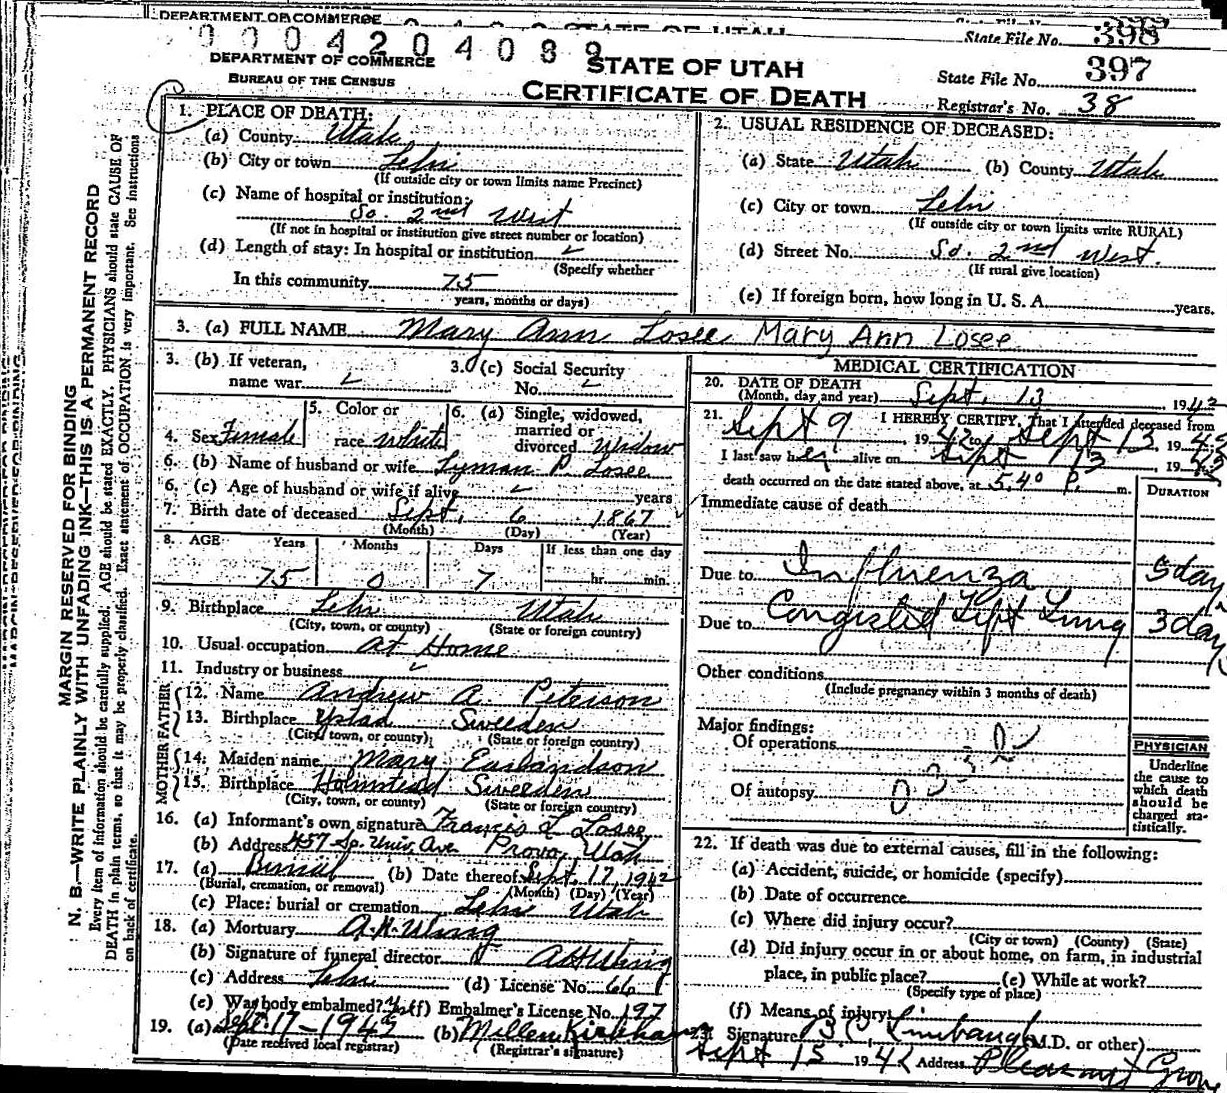 DEPARTMENT OF COMMERCE
STATE OF UTAH
State File No. 398
0004204089
DEPARTMENT OF COMMERCE
BUREAU OF THE CENSUS
STATE OF UTAH
CERTIFICATE OF DEATH
State File No. 397
Registrar's No. 38
MARGIN RESERVED FOR BINDING
N. B.—WRITE PLAINLY WITH UNFADING INK—THIS IS A PERMANENT RECORD
Every item of information should be carefully supplied. AGE should be stated EXACTLY. PHYSICIANS should state CAUSE OF
DEATH in plain terms, so that it may be properly classified. Exact statement of OCCUPATION is very important. See instructions
on back of certificate.
1. PLACE OF DEATH:
(a) County Utah
(b) City or town Lehi
(If outside city or town limits name Precinct)
(c) Name of hospital or institution:
So. 2nd West
(If not in hospital or institution give street number or location)
(d) Length of stay: In hospital or institution
(Specify whether
In this community 75
years, months or days)
2. USUAL RESIDENCE OF DECEASED:
(a) State Utah (b) County Utah
(c) City or town Lehi
(If outside city or town limits write RURAL)
(d) Street No. So. 2nd West.
(If rural give location)
(e) If foreign born, how long in U. S. A. years.
3. (a) FULL NAME Mary Ann Losee Mary Ann Losee
3. (b) If veteran,
name war
3. (c) Social Security
No.
4. Sex Female
5. Color or
race White
6. (a) Single, widowed,
married or
divorced Widow
6. (b) Name of husband or wife Lyman P. Losee
6. (c) Age of husband or wife if alive years
7. Birth date of deceased Sept. 6 1867
(Month) (Day) (Year)
8. AGE Years Months Days If less than one day
75 0 7 hr. min.
9. Birthplace Lehi Utah
(City, town, or county) (State or foreign country)
10. Usual occupation At Home
11. Industry or business
FATHER
12. Name Andrew A. Peterson
13. Birthplace Ystad Sweeden
(City, town, or county) (State or foreign country)
MOTHER
14. Maiden name Mary
15. Birthplace Holmstead Sweeden
(City, town, or county) (State or foreign country)
16. (a) Informant's own signature Francis L Losee
(b) Address 457 So. Univ. Ave Provo, Utah
17. (a) Burial (b) Date thereof Sept. 17, 1942
(Burial, cremation, or removal) (Month) (Day) (Year)
(c) Place: burial or cremation Lehi Utah
18. (a) Mortuary A.H.
(b) Signature of funeral director
(c) Address Lehi (d) License No. 66
(e) Was body embalmed? Yes (f) Embalmer's License No. 197
19. (a) Sept. 17-1942 (b) Millen Kirkham
(Date received local registrar) (Registrar's signature)
MEDICAL CERTIFICATION
20. DATE OF DEATH
(Month, day and year) Sept. 13 1942
21. I HEREBY CERTIFY, That I attended deceased from
Sept 9, 1942 to Sept 13, 1942
I last saw her alive on Sept 13, 1942
death occurred on the date stated above, at 5:40 P. m.
DURATION
Immediate cause of death
Due to Influenza 5 days
Due to Congested Left Lung 3 days
Other conditions
(Include pregnancy within 3 months of death)
Major findings:
Of operations
Of autopsy
PHYSICIAN
Underline
the cause to
which death
should be
charged sta-
tistically.
22. If death was due to external causes, fill in the following:
(a) Accident, suicide, or homicide (specify)
(b) Date of occurrence
(c) Where did injury occur?
(City or town) (County) (State)
(d) Did injury occur in or about home, on farm, in industrial
place, in public place? (e) While at work?
(Specify type of place)
(f) Means of injury
23. Signature B C Limbaugh (M.D. or other)
Sept 15 1942 Address Pleasant Grove